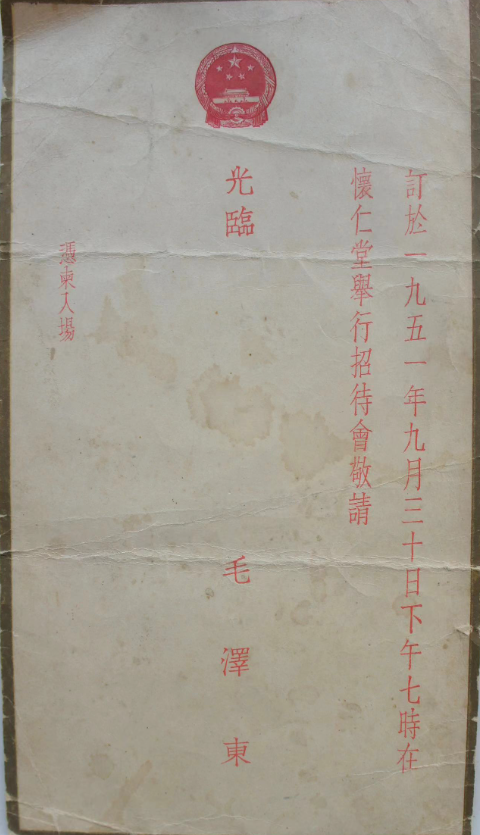 訂於一九五一年九月三十日下午七時在
懷仁堂舉行招待會敬請
光臨
毛澤東
憑柬入場